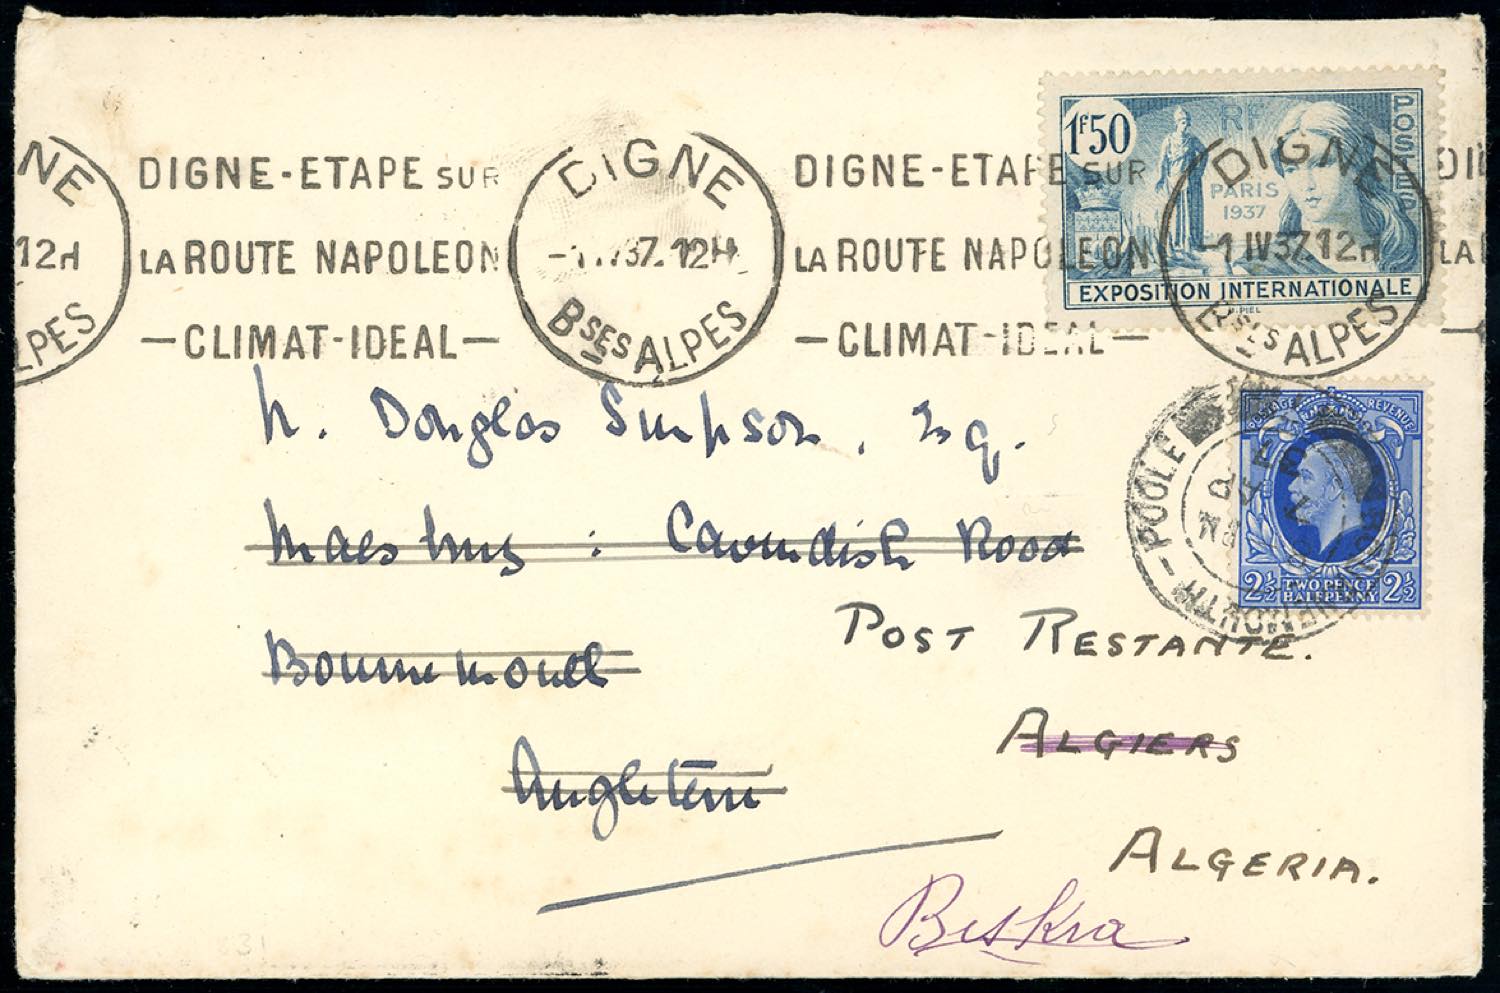 NE
12H
LPES
DIGNE-ETAPE SUR
LA ROUTE NAPOLEON
—CLIMAT-IDEAL—
DIGNE
-1 IV 37. 12H
BSES ALPES
DIGNE-ETAPE SUR
LA ROUTE NAPOLEON
—CLIMAT-IDEAL—
DIGNE
-1 IV 37. 12H
BSES ALPES
DI
LA
1F50
RF
POSTES
PARIS
1937
EXPOSITION INTERNATIONALE
POSTAGE REVENUE
2½ TWO PENCE HALFPENNY 2½
POOLE
Douglas Simpson, Esq.
: Cavendish Road
Bournemouth
Angleterre
POST RESTANTE.
ALGIERS
ALGERIA.
Biskra